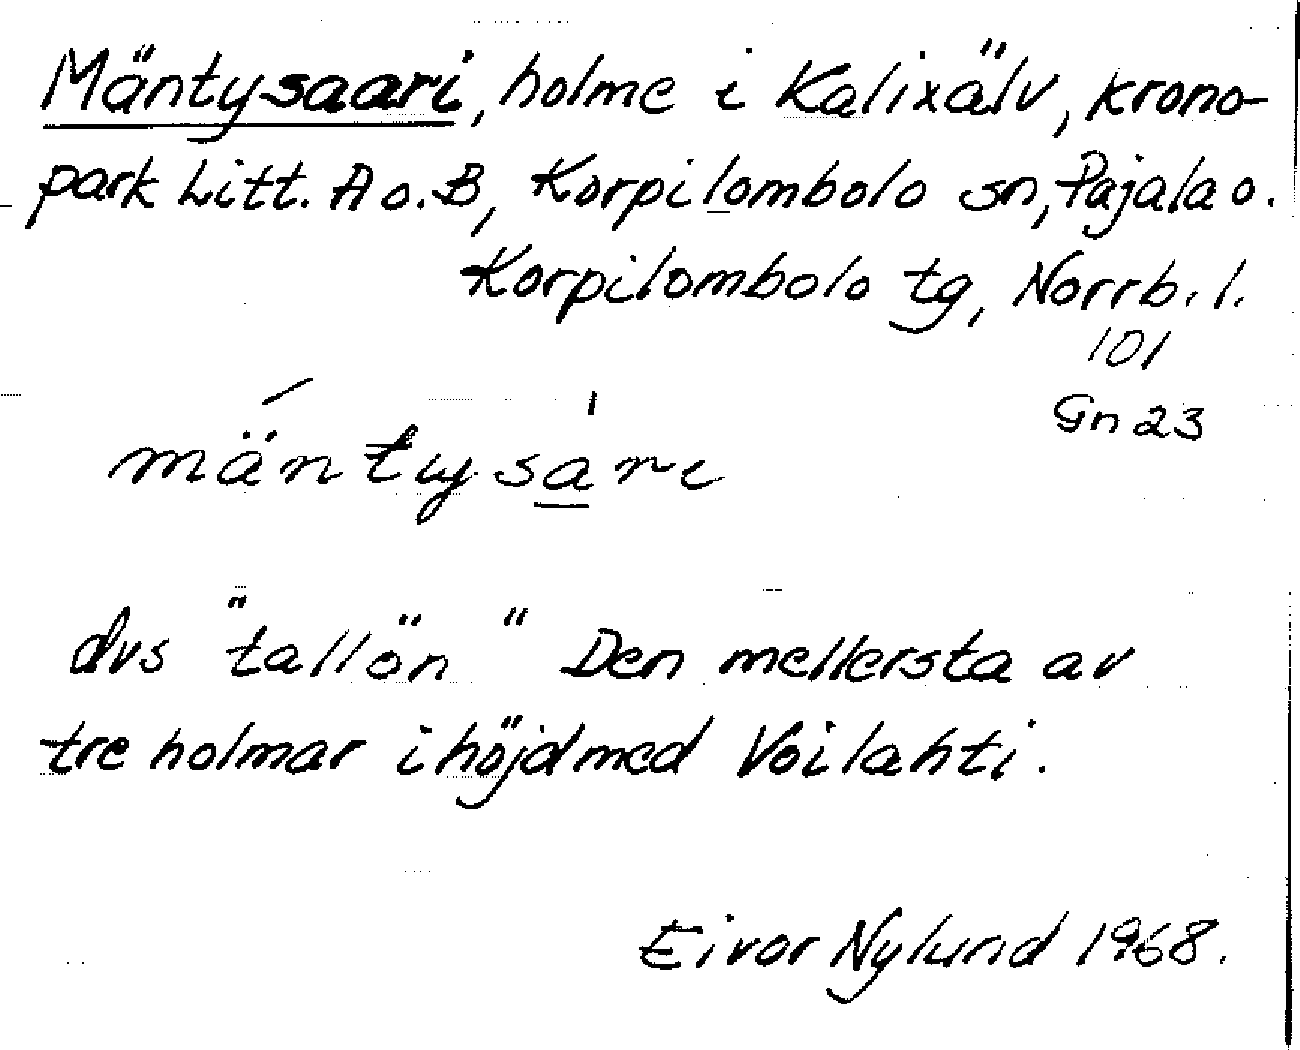 Mäntysaari, holme i Kalixälv, krono-
park Litt. A o. B, Korpilombolo sn, Pajala o.
Korpilombolo tg, Norrb. l.
101
Gn 23
mäntysari
dvs "tallön" Den mellersta av
tre holmar i höjd med Voilahti.
Eivor Nylund 1968.